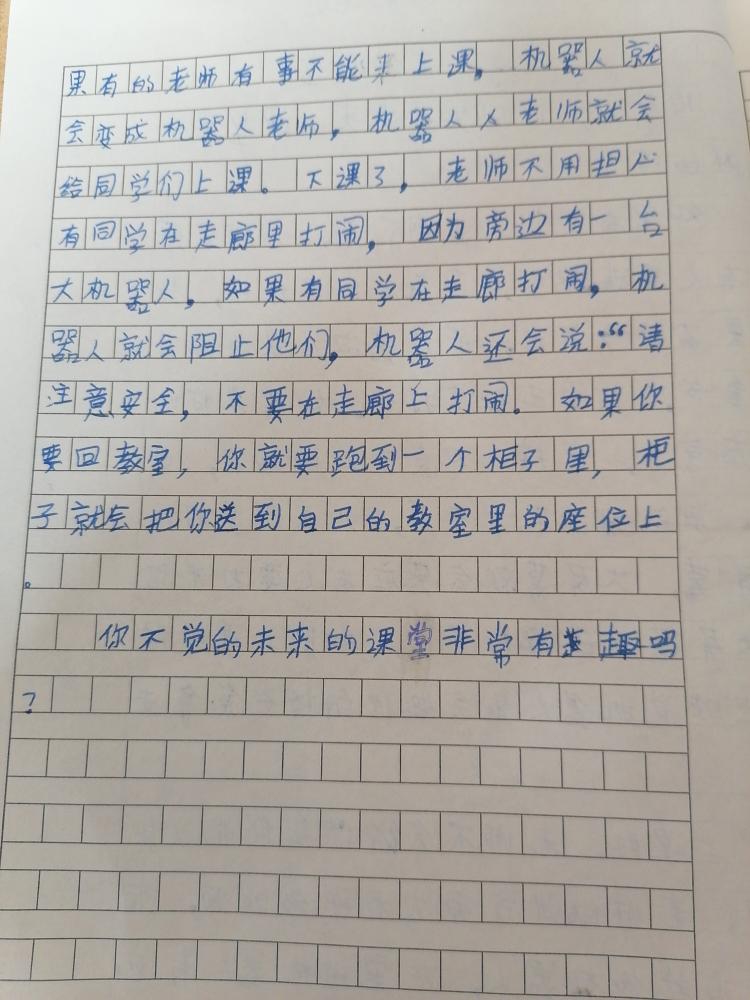 果有的老师有事不能来上课，机器人就
会变成机器人老师，机器人人老师就会
给同学们上课。下课了，老师不用担心
有同学在走廊里打闹，因为旁边有一台
大机器人，如果有同学在走廊打闹，机
器人就会阻止他们，机器人还会说：“请
注意安全，不要在走廊上打闹。如果你
要回教室，你就要跑到一个柜子里，柜
子就会把你送到自己的教室里的座位上
。
你不觉的未来的课堂非常有趣吗
？